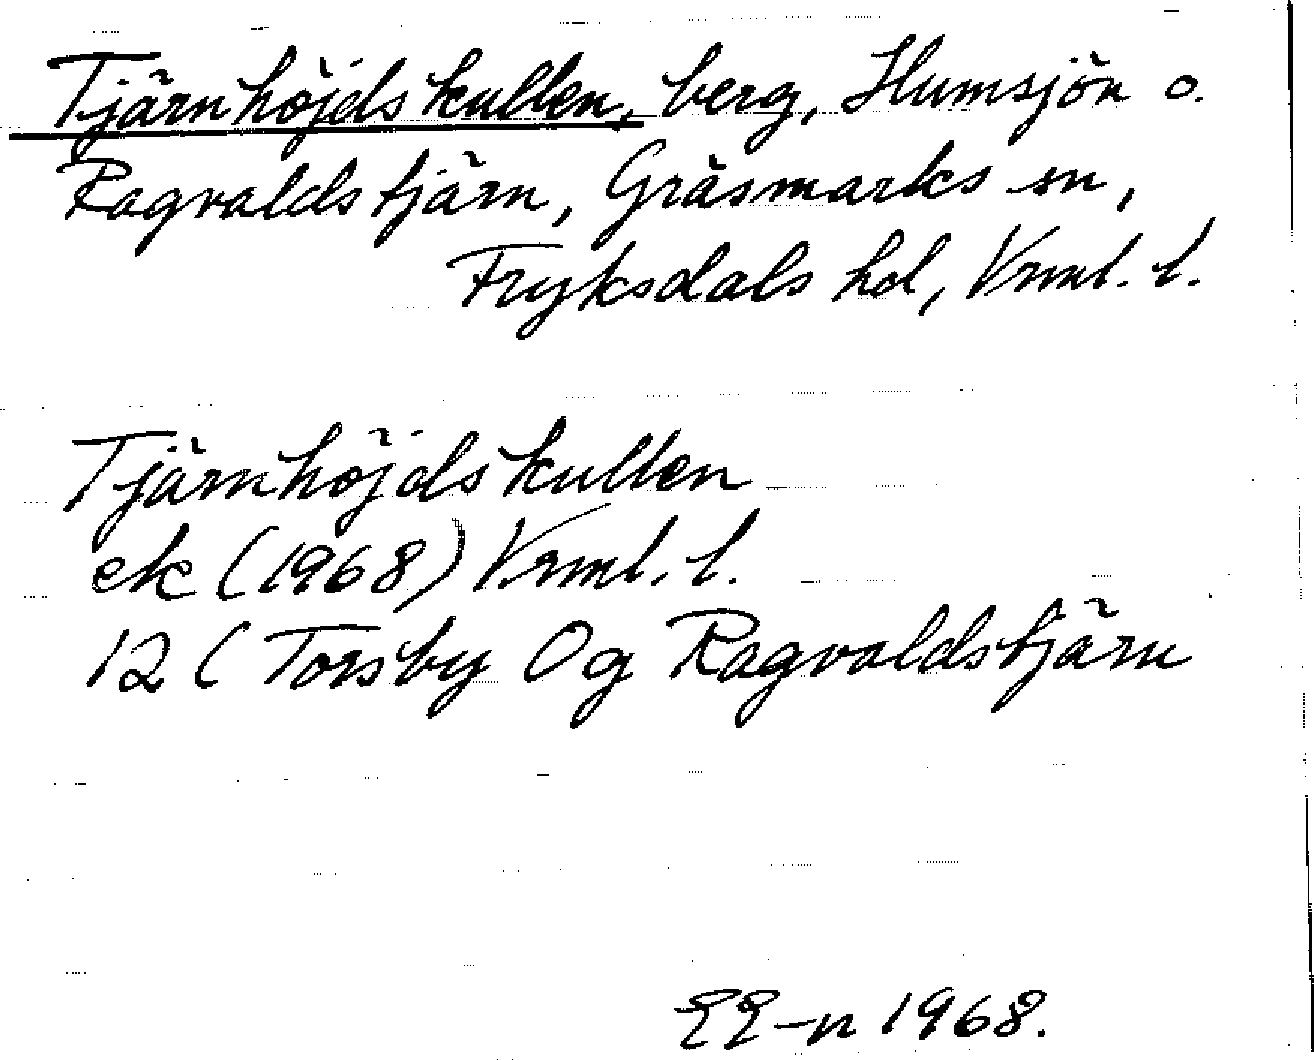 Tjärnhöjdskullen, berg, Humsjön o.
Ragvaldstjärn, Gräsmarks sn,
Fryksdals hd, Vrml. l.
Tjärnhöjdskullen
ek (1968) Vrml. l.
12 C Torsby Og Ragvaldstjärn
EE-n 1968.